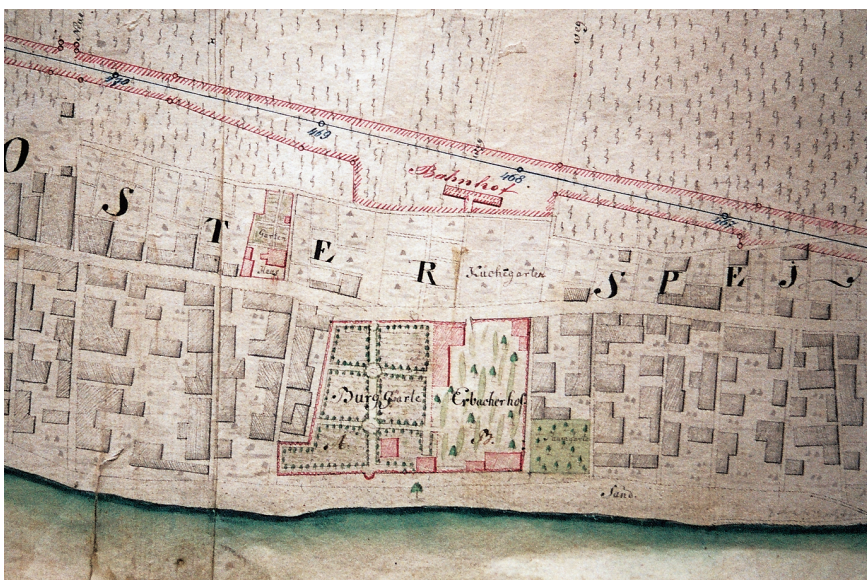 469
468
Bahnhof
OSTERSPEJ
Garten
Haus
Küchegarten
Burg Garte
Erbacherhof
A.
B.
Sand.